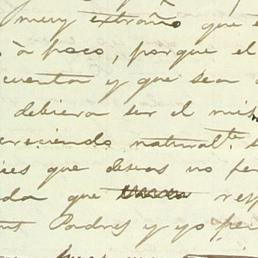 muy extraño que e
à poco, porque el
cuenta y que sea
debiera ser el mis
creciendo natural.te s
ces que deseas no
da que resp
Padres y yo